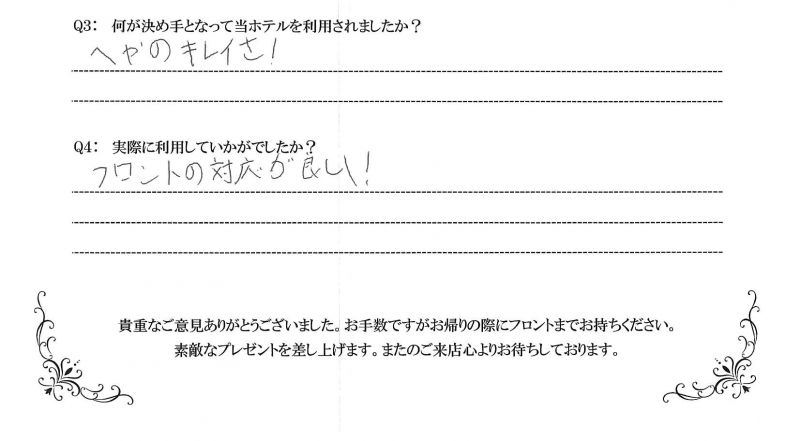 Q3: 何が決め手となって当ホテルを利用されましたか?
ヘヤのキレイさ!
Q4: 実際に利用していかがでしたか?
フロントの対応が良い!
貴重なご意見ありがとうございました。お手数ですがお帰りの際にフロントまでお持ちください。
素敵なプレゼントを差し上げます。またのご来店心よりお待ちしております。